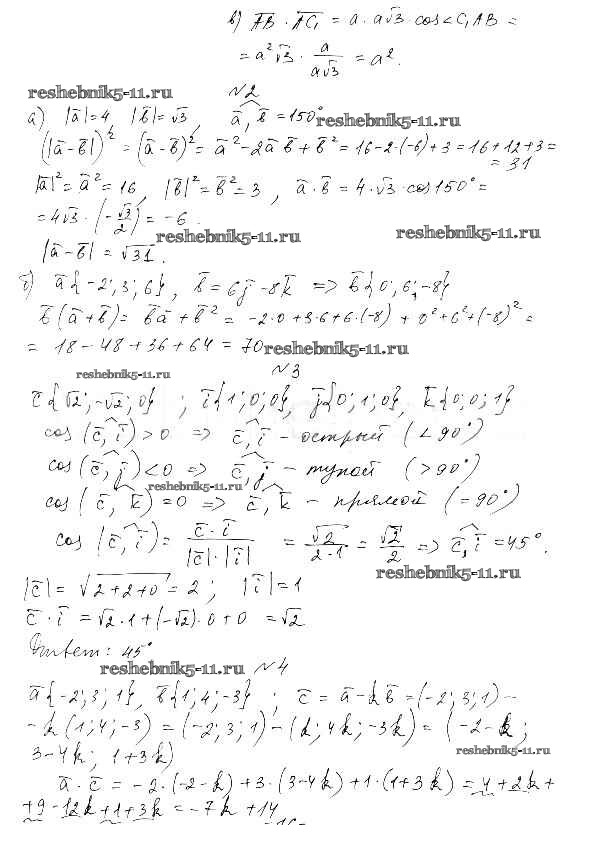 в) AB · AC₁ = a · a√3 cos∠C₁AB =
= a²√3 · a/(a√3) = a².
reshebnik5-11.ru
№2
а) |ā|=4, |b̄|=√3, ā, b̄ = 150° reshebnik5-11.ru
(|ā-b̄|)² = (ā-b̄)² = ā²-2āb̄+b̄² = 16-2·(-6)+3 = 16+12+3 =
= 31
|ā|² = ā² = 16, |b̄|² = b̄² = 3, ā·b̄ = 4·√3·cos150° =
= 4√3·(-√3/2) = -6.
reshebnik5-11.ru reshebnik5-11.ru
|ā-b̄| = √31.
б) ā{-2; 3; 6}, b̄ = 6j̄ - 8k̄ => b̄{0; 6; -8}
b̄(ā+b̄) = b̄ā + b̄² = -2·0+3·6+6·(-8) + 0²+6²+(-8)² =
= 18-48+36+64 = 70 reshebnik5-11.ru
reshebnik5-11.ru
№3
c̄{√2; -√2; 0}; ī{1; 0; 0}, j̄{0; 1; 0}, k̄{0; 0; 1}
cos(c̄, ī) > 0 => c̄, ī - острый (< 90°)
cos(c̄, j̄) < 0 => c̄, j̄ - тупой (> 90°)
reshebnik5-11.ru
cos(c̄, k̄) = 0 => c̄, k̄ - прямой (= 90°)
cos(c̄, ī) = c̄·ī/(|c̄|·|ī|) = √2/(2·1) = √2/2 => c̄, ī = 45°.
reshebnik5-11.ru
|c̄| = √(2+2+0) = 2; |ī| = 1
c̄·ī = √2·1+(-√2)·0+0 = √2
Ответ: 45°
reshebnik5-11.ru №4
ā{-2; 3; 1}, b̄{1; 4; -3}; c̄ = ā-kb̄ = (-2; 3; 1) -
- k(1; 4; -3) = (-2; 3; 1) - (k; 4k; -3k) = (-2-k;
3-4k; 1+3k)
reshebnik5-11.ru
ā·c̄ = -2·(-2-k)+3·(3-4k)+1·(1+3k) = 4+2k+
+9-12k+1+3k = -7k+14